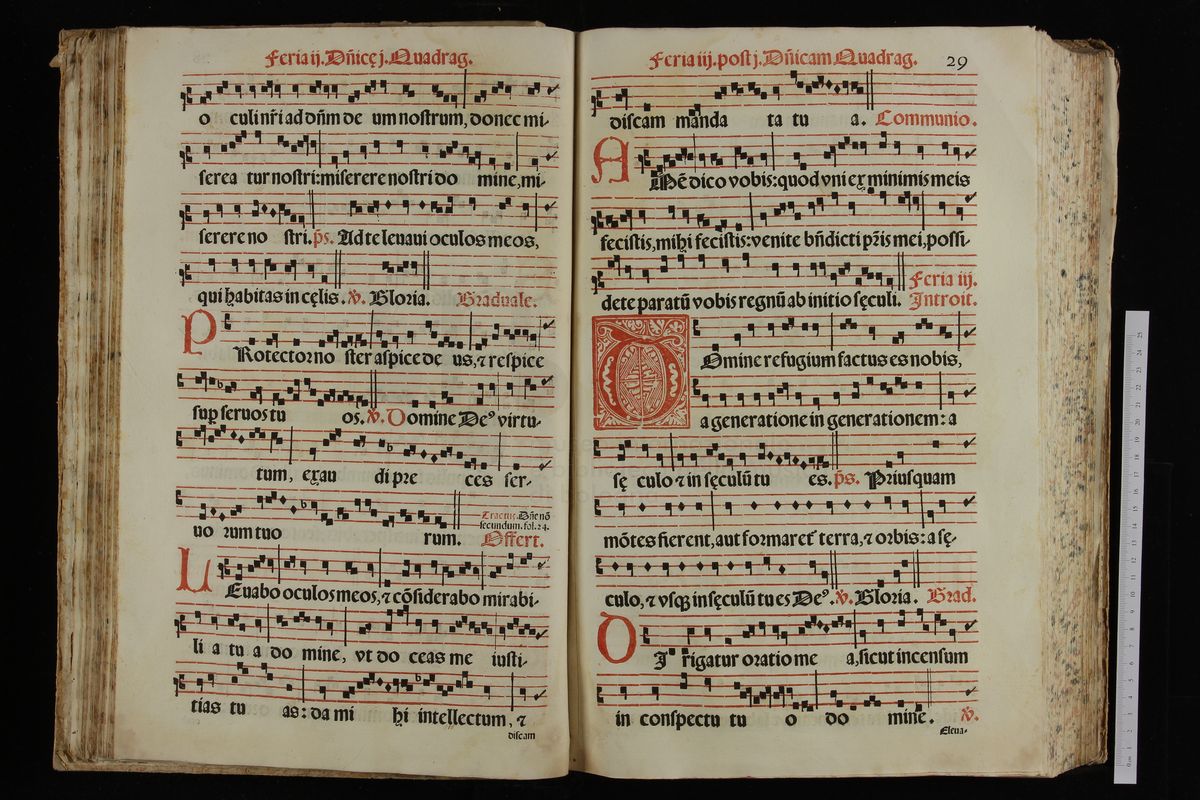 Feria ij. Dñicę j. Quadrag.
o culi nr̃i ad dñm de um nostrum, donec mi-
serea tur nostri: miserere nostri do mine, mi-
serere no stri. p̃s. Ad te leuaui oculos meos,
qui habitas in cęlis. ℣. Gloria. Graduale.
PRotector no ster aspice de us, ⁊ respice
sup seruos tu os. ℣. Domine Deꝰ virtu-
tum, exau di pre ces ser-
uo rum tuo rum.
Tractus. Dñe nõ
secundum. fol. 24.
Offert.
LEuabo oculos meos, ⁊ cõsiderabo mirabi-
li a tu a do mine, vt do ceas me iusti-
tias tu as: da mi hi intellectum, ⁊
discam
Feria iij. post j. Dñicam Quadrag. 29
discam manda ta tu a. Communio.
AMẽ dico vobis: quod vni ex minimis meis
fecistis, mihi fecistis: venite bñdicti pr̃is mei, possi-
dete paratũ vobis regnũ ab initio sęculi.
Feria iij.
Introit.
DOmine refugium factus es nobis,
a generatione in generationem: a
sę culo ⁊ in sęculũ tu es. p̃s. Priusquam
mõtes fierent, aut formaret᷒ terra, ⁊ orbis: a sę-
culo, ⁊ vsqꝫ in sęculũ tu es Deꝰ. ℣. Gloria. Grad.
DIrigatur oratio me a, sicut incensum
in conspectu tu o do mine. ℣.
Eleua-